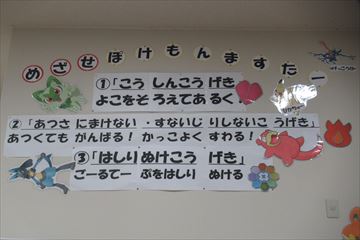 めざせぽけもんますたー
①「こう しんこう げき」
よこをそ ろえてあ るく
②「あつさ にまけない ・すないじ りしないこ うげき」
あつくても がんばる! かっこよく すわる!
③「はしり ぬけこう げき」
ごーるてー ぷをはしり ぬける